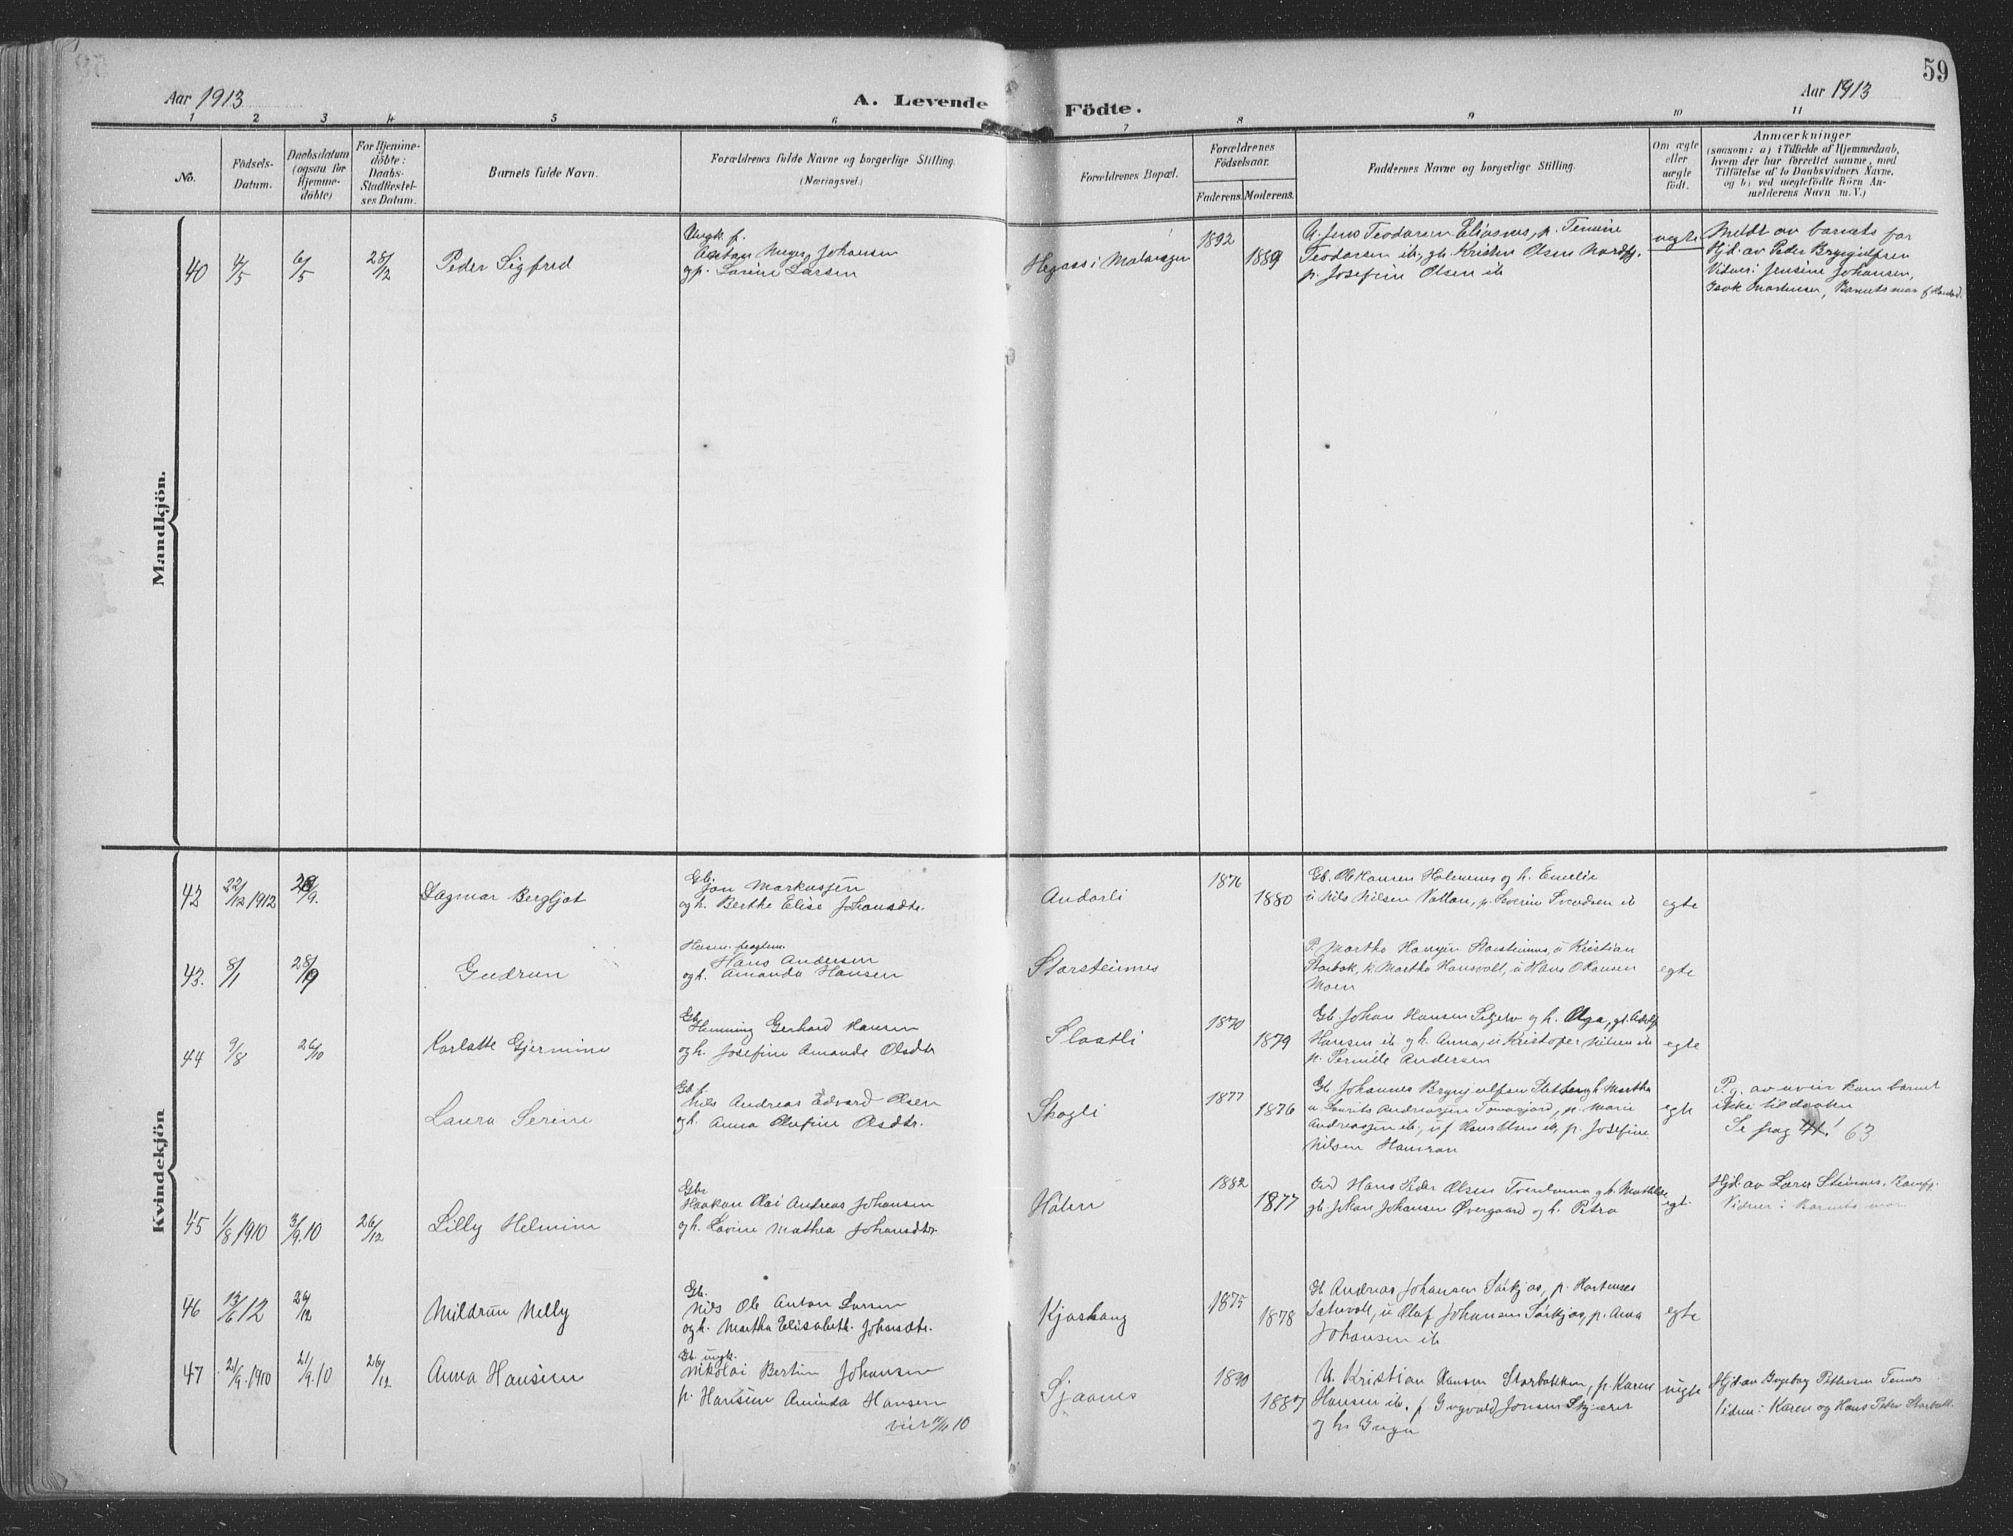 59
Aar 1913
A. Levende Födte.
Aar 1913
1 2 3 4 5 6 7 8 9 10 11
No.
Födsels-
Datum.
Daabsdatum
(ogsaa for
Hjemme-
döbte)
For Hjemme-
döbte:
Daabs-
Stadfæstel-
ses Datum.
Barnets fulde Navn.
Forældrenes fulde Navne og borgerlige Stilling.
(Næringsvei.)
Forældrenes Bopæl.
Forældrenes
Födselsaar.
Faderens. Moderens.
Faddernes Navne og borgerlige Stilling.
Om ægte
eller
uægte
födt.
Anmærkninger
(saasom: a) i Tilfælde af Hjemmedaab,
hvem der har forrettet samme, med
Tilföielse af to Daabsvidners Navne,
og b) ved uegtefödte Börn An-
melderens Navn m. V.)
Mandkjön.
40 4/5 6/5 28/12 Peder Sigfred
Ungk. f.
Anton Meyer Johansen
gp. Lorine Larsen
Hegaas i Malangen
1892
1889
U. Jens Teodorsen Eliasnes, p. Temine
Teodorsen ib., gb. Kristen Olsen Nordfj.
p. Josefine Olsen ib
uegte
Meldt av barnets far
Hjd. av Peder Brynjulfsen
Vidner: Jensine Johansen,
Isak Mortensen, Barnets mor f
Kvindekjön
42 22/12 1912 28/9. Dagmar Bergljot
Gb.
Jon Markussen
og h. Berthe Elise Johansdtr.
Andorli
1876
1880
Gb. Ole Hansen Holmenes og h. Emelie
u Nils Nilsen Vollan, p. Severine Svendsen ib
egte
43. 8/1 28/9 Gudrun
Hans Andersen
og h. Amanda Hansen
Storsteinnes
P. Martha Hansen Storsteinnes, u Kristian
Storbak, p. Martha Hansvoll, u Hans O Hansen
Moen
egte
44 9/8 26/10 Karlotte Gjermine
Gb.
Hemming Gerhard Hansen
og h. Josefine Amande Olsdtr
Slaatli
1870
1879
Gb. Johan Hansen og h. Olga, gb. Adolf
Hansen ib og h. Anna, u Kristofer Nilsen ib
p. Pernille Andersen
egte
Laura Serine
Gb. f.
Nils Andreas Edvard Olsen
og h. Anna Olufine Olsdtr.
Skogli
1877
1876
Gb. Johannes Brynjulfsen og h. Martha
u Laurits Andreassen Tomasjord, p. Marie
Andreassen ib., u f Hans Olsen ib, p. Josefine
Nilsen
egte
P. g. av uveir kom barnet
ikke til daaben
Se pag 41! 63
45 1/8 1910 3/9.10 26/12 Lilly Helmine
Gb.
Haakon Olai Andreas Johansen
og h. Lovine Mathea Johansdtr.
Holen
1882
1877
Hans Peder Olsen og h. Mathilde
gb. Johan Johansen Övergaard og h. Petra
egt.
Hjd. av Lars Steinnes,
Vidner: Barnets mor
46 13/6 12 26/12 Mildrun Nelly
Gb.
Nils Ole Anton Larsen
og h. Martha Elisabeth Johansdtr.
Kjoshaug
1875
1878
Gb Andreas Johansen Sörkjos, p. Hortense
Sætervoll, u Olaf Johansen Sörkjos, p. Anna
Johansen ib
egte
47 21/9.1910 21/9.10 26/12 Anna Hansine
Gb. ungk.
Nikolai Bertin Johansen
p. Hansine Aminda Hansen
10
Sjaanes
1890
1887
U. Kristian Hansen Storbakken, p. Karen
Hansen ib. f Ingvald Jensen
og h. Inga
uegte
Hjd. av Ingeborg Pettersen Tennes
Vidner: Karen og Hans Peder Storbakk.